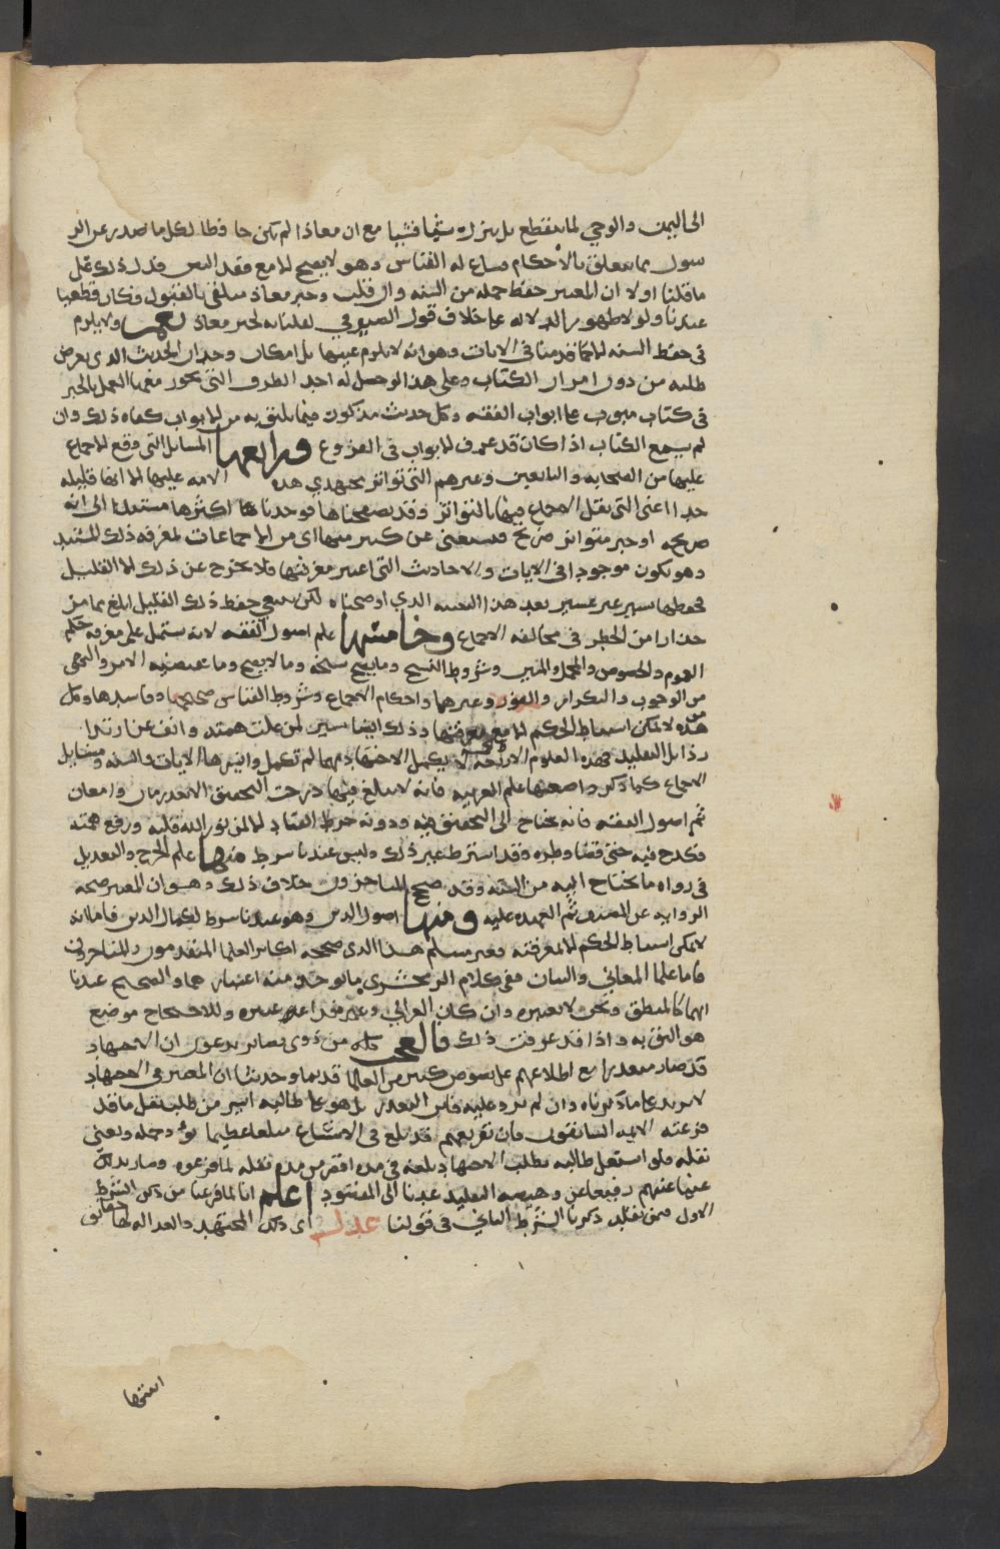 الى اليمن والوحي لما ينقطع بل ينزل شيئا فشيئا مع ان معاذا لم يكن حافظا لكل ما صدر عن الر
سول مما يتعلق بالاحكام فساغ له القياس وهو لا يصح الا مع فقد النص فدل ذلك على
ما قلنا اولا ان المعتبر حفظ جمله من السنه وان قلت وخبر معاذ متلقى بالقبول فكان قطعيا
عندنا ولولا ظهور الدلاله على خلاف قول الصيرفي لقلنا به لخبر معاذ نعم ولا يلزم
في حفظ السنه الا ما قدمنا في الايات وهو انه لا يلزم غيبها بل امكان وجدان الحديث الذي يعرض
طلبه من دون امرار الكتاب وعلى هذا لو حصل له احد الطرق التي يجوز معها العمل بالخبر
في كتاب مبوب على ابواب الفقه وكل حديث مذكور فيما يليق به من الابواب كفاه ذلك وان
لم يسمع الكتاب اذا كان قد عرف الابواب في الفروع ورابعها المسايل التي وقع الاجماع
عليها من الصحابه والتابعين وغيرهم التي تواتر مجتهدي هذه الامه عليها الا انها قليله
جدا اعني التي نقل الاجماع فيها بالتواتر وقد تصفحناها فوجدنا اكثرها مستندا الى ايه
صريحه او خبر متواتر صريح فيستغنى عن كثير منها اي من الاجماعات لمعرفه ذلك المستند
وهو يكون موجودا في الايات والاحاديث التي اعتبر معرفتها فلا يخرج عن ذلك الا القليل
فحفظها يسير غير عسير بعد هذا التنبيه الذي اوضحناه لكن ينبغي حفظ ذلك القليل ابلغ مما مر
حذارا من الخطر في مخالفه الاجماع وخامسها علم اصول الفقه لانه يشتمل على معرفه حكم
العموم والخصوص والمجمل والمبين وشروط النسخ وما يصح نسخه وما لا يصح وما يقتضيه الامر والنهي
من الوجوب والتكرار والفور وغيرهما واحكام الاجماع وشروط القياس صحيحها وفاسدها وكل
هذه لا يمكن استنباط الحكم الا مع معرفتها وذلك ايضا يسير لمن علت همته وانف عن ارتدا
رذايل التقليد فهذه العلوم الاربعه لا يكمل الاجتهاد مهما لم تكمل وايسرها الايات والسنه ومسايل
الاجماع كما ذكر واصعبها علم العربيه فانه لا يبلغ فيها درجت التحقيق الا بعد زمان وامعان
ثم اصول الفقه فانه يحتاج الى التحقيق فيه ودونه خرط القتاد الا لمن نور الله قلبه ورفع همته
فكدح فيه حتى قضا وطره وقد اشترط غير ذلك وليس عندنا بشرط منها علم الجرح والتعديل
في رواه ما يحتاج اليه من السنه وقد صحح المتاخرون خلاف ذلك وهو ان المعتبر صحه
الروايه عن المصنف ثم العهده عليه ومنها اصول الدين وهو عندنا شرط لكمال الدين فاما لانه
لا يمكن استنباط الحكم الا لمعرفته فغير مسلم هذا الذي صححه اكابر العلما المتقدمون والمتاخرون
فاما علما المعاني والبيان ففي كلام الزمخشري ما يوخذ منه اعتبارهما والصحيح عندنا
انهما كالمنطق ونحن لا نعتبره وان كان الغزالي وغيره قد اعتبره وللاحتجاج موضع
هو اليق به واذا قد عرفت ذلك فالعجب كله من ذوي بصاير يدعون ان الاجتهاد
قد صار متعذرا مع اطلاعهم على نصوص كثير من العلما قديما وحديثا ان المعتبر في الاجتهاد
لا يزيد على ما ذكرناه وان لم يرد عليه فاين التعذر بل هو على طالبه ايسر من طلب نقل ما قد
فرعته الايمه السابقون فان تفريعهم قد بلغ في الاتساع مبلغا عظيما يؤد حمله ويعنى
نقله فلو استعمل طالبه بطلب الاجتهاد بلغه في مده اقصر من مده نقله لما فرعوه وصار بذلك
غنيا عنهم رفيعا عن وهيصه التقليد عندنا الى المقصود اعلم انا لما فرغنا من ذكر الشرط
الاول فيمن يقلد ذكرنا الشرط الثاني في قولنا عدل اي ذلك المجتهد والعداله لها حقايق
انتهى